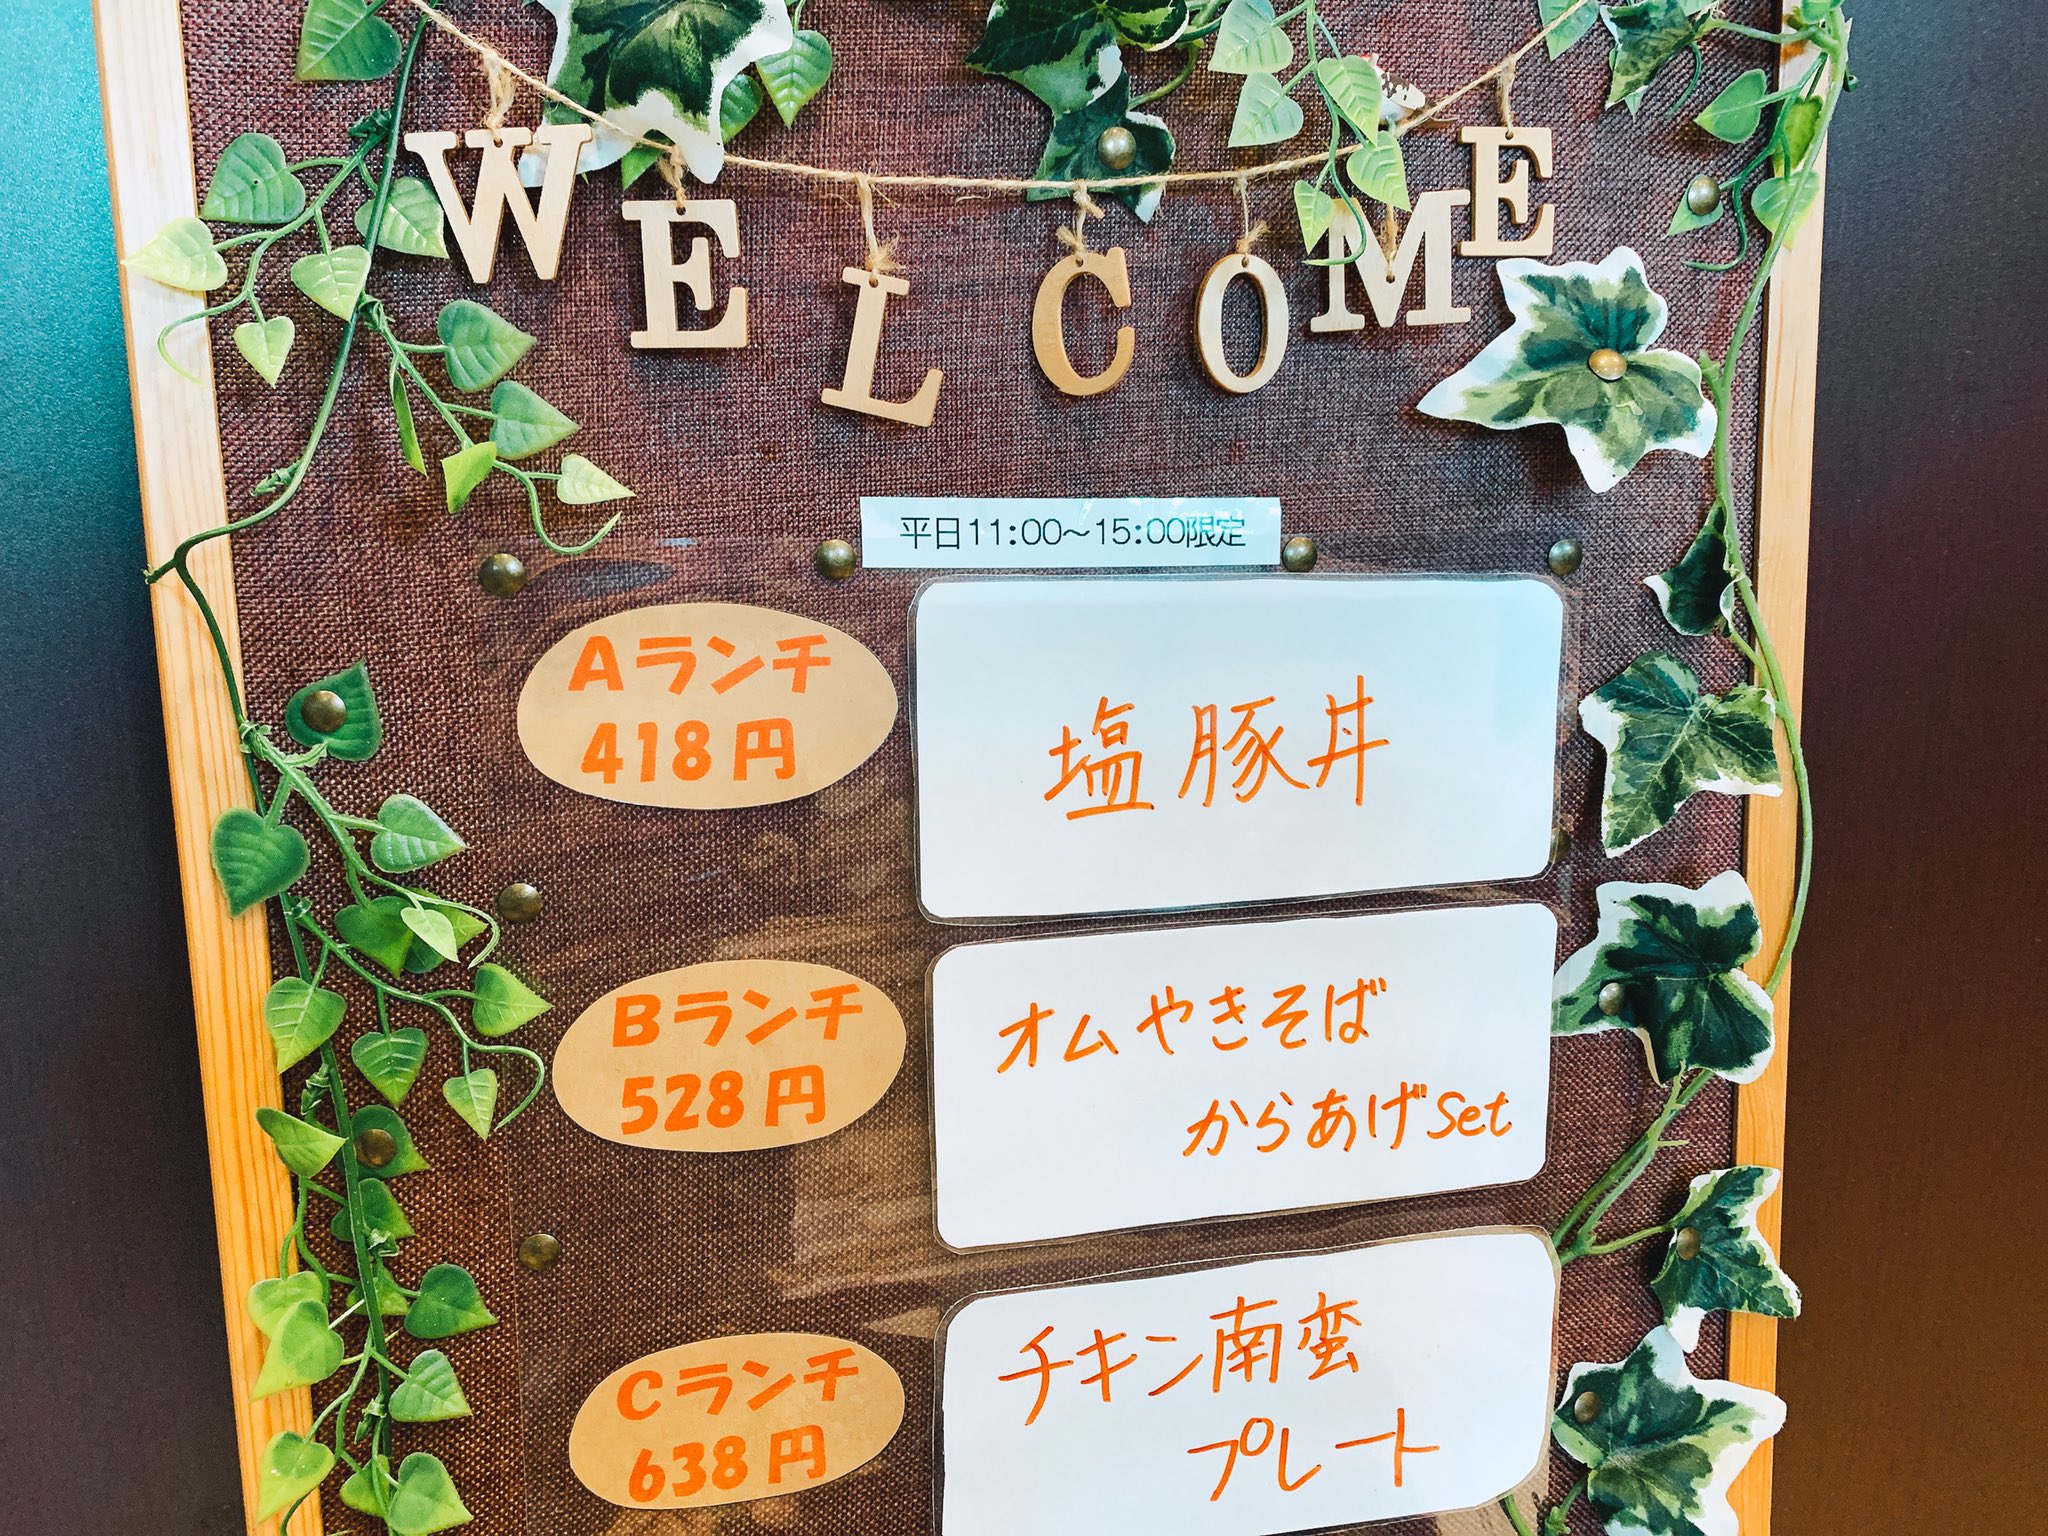 WELCOME
平日11:00～15:00限定
Aランチ
418円
塩豚丼
Bランチ
528円
オムやきそば
からあげset
Cランチ
638円
チキン南蛮
プレート